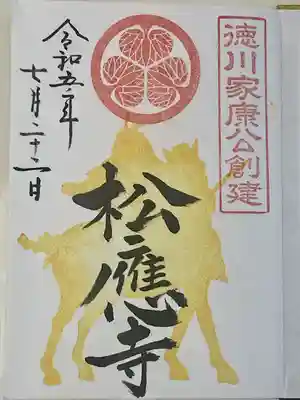 徳川家康公創建
松應寺
令和五年
七月二十二日